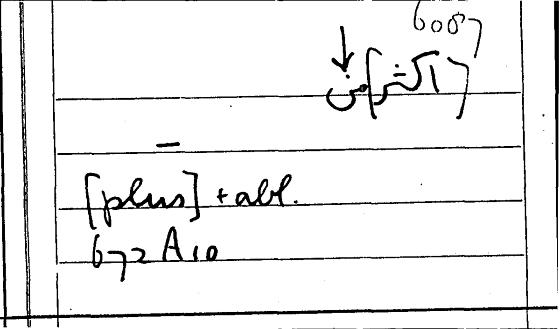 6087
↓
[اكثر] من
—
[plus] + abl.
672 A 10